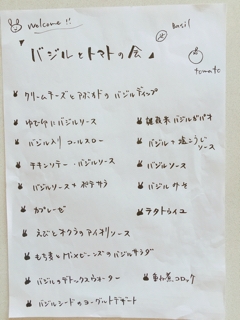 welcome!!
Basil
tomato
『バジルとトマトの会』
クリームチーズとアボカドのバジルディップ
ゆで卵にバジルソース
バジル入りコールスロー
チキンソテー・バジルソース
バジルソース＋ポテサラ
カプレーゼ
えびとオクラのアイオリソース
もち麦とMixビーンズのバジルサラダ
バジルのデトックスウォーター
バジルシードのヨーグルトデザート
雑穀米バジルガパオ
バジルと塩こうじソース
バジルソース
バジル
ラタトゥイユ
重ね煮コロッケ